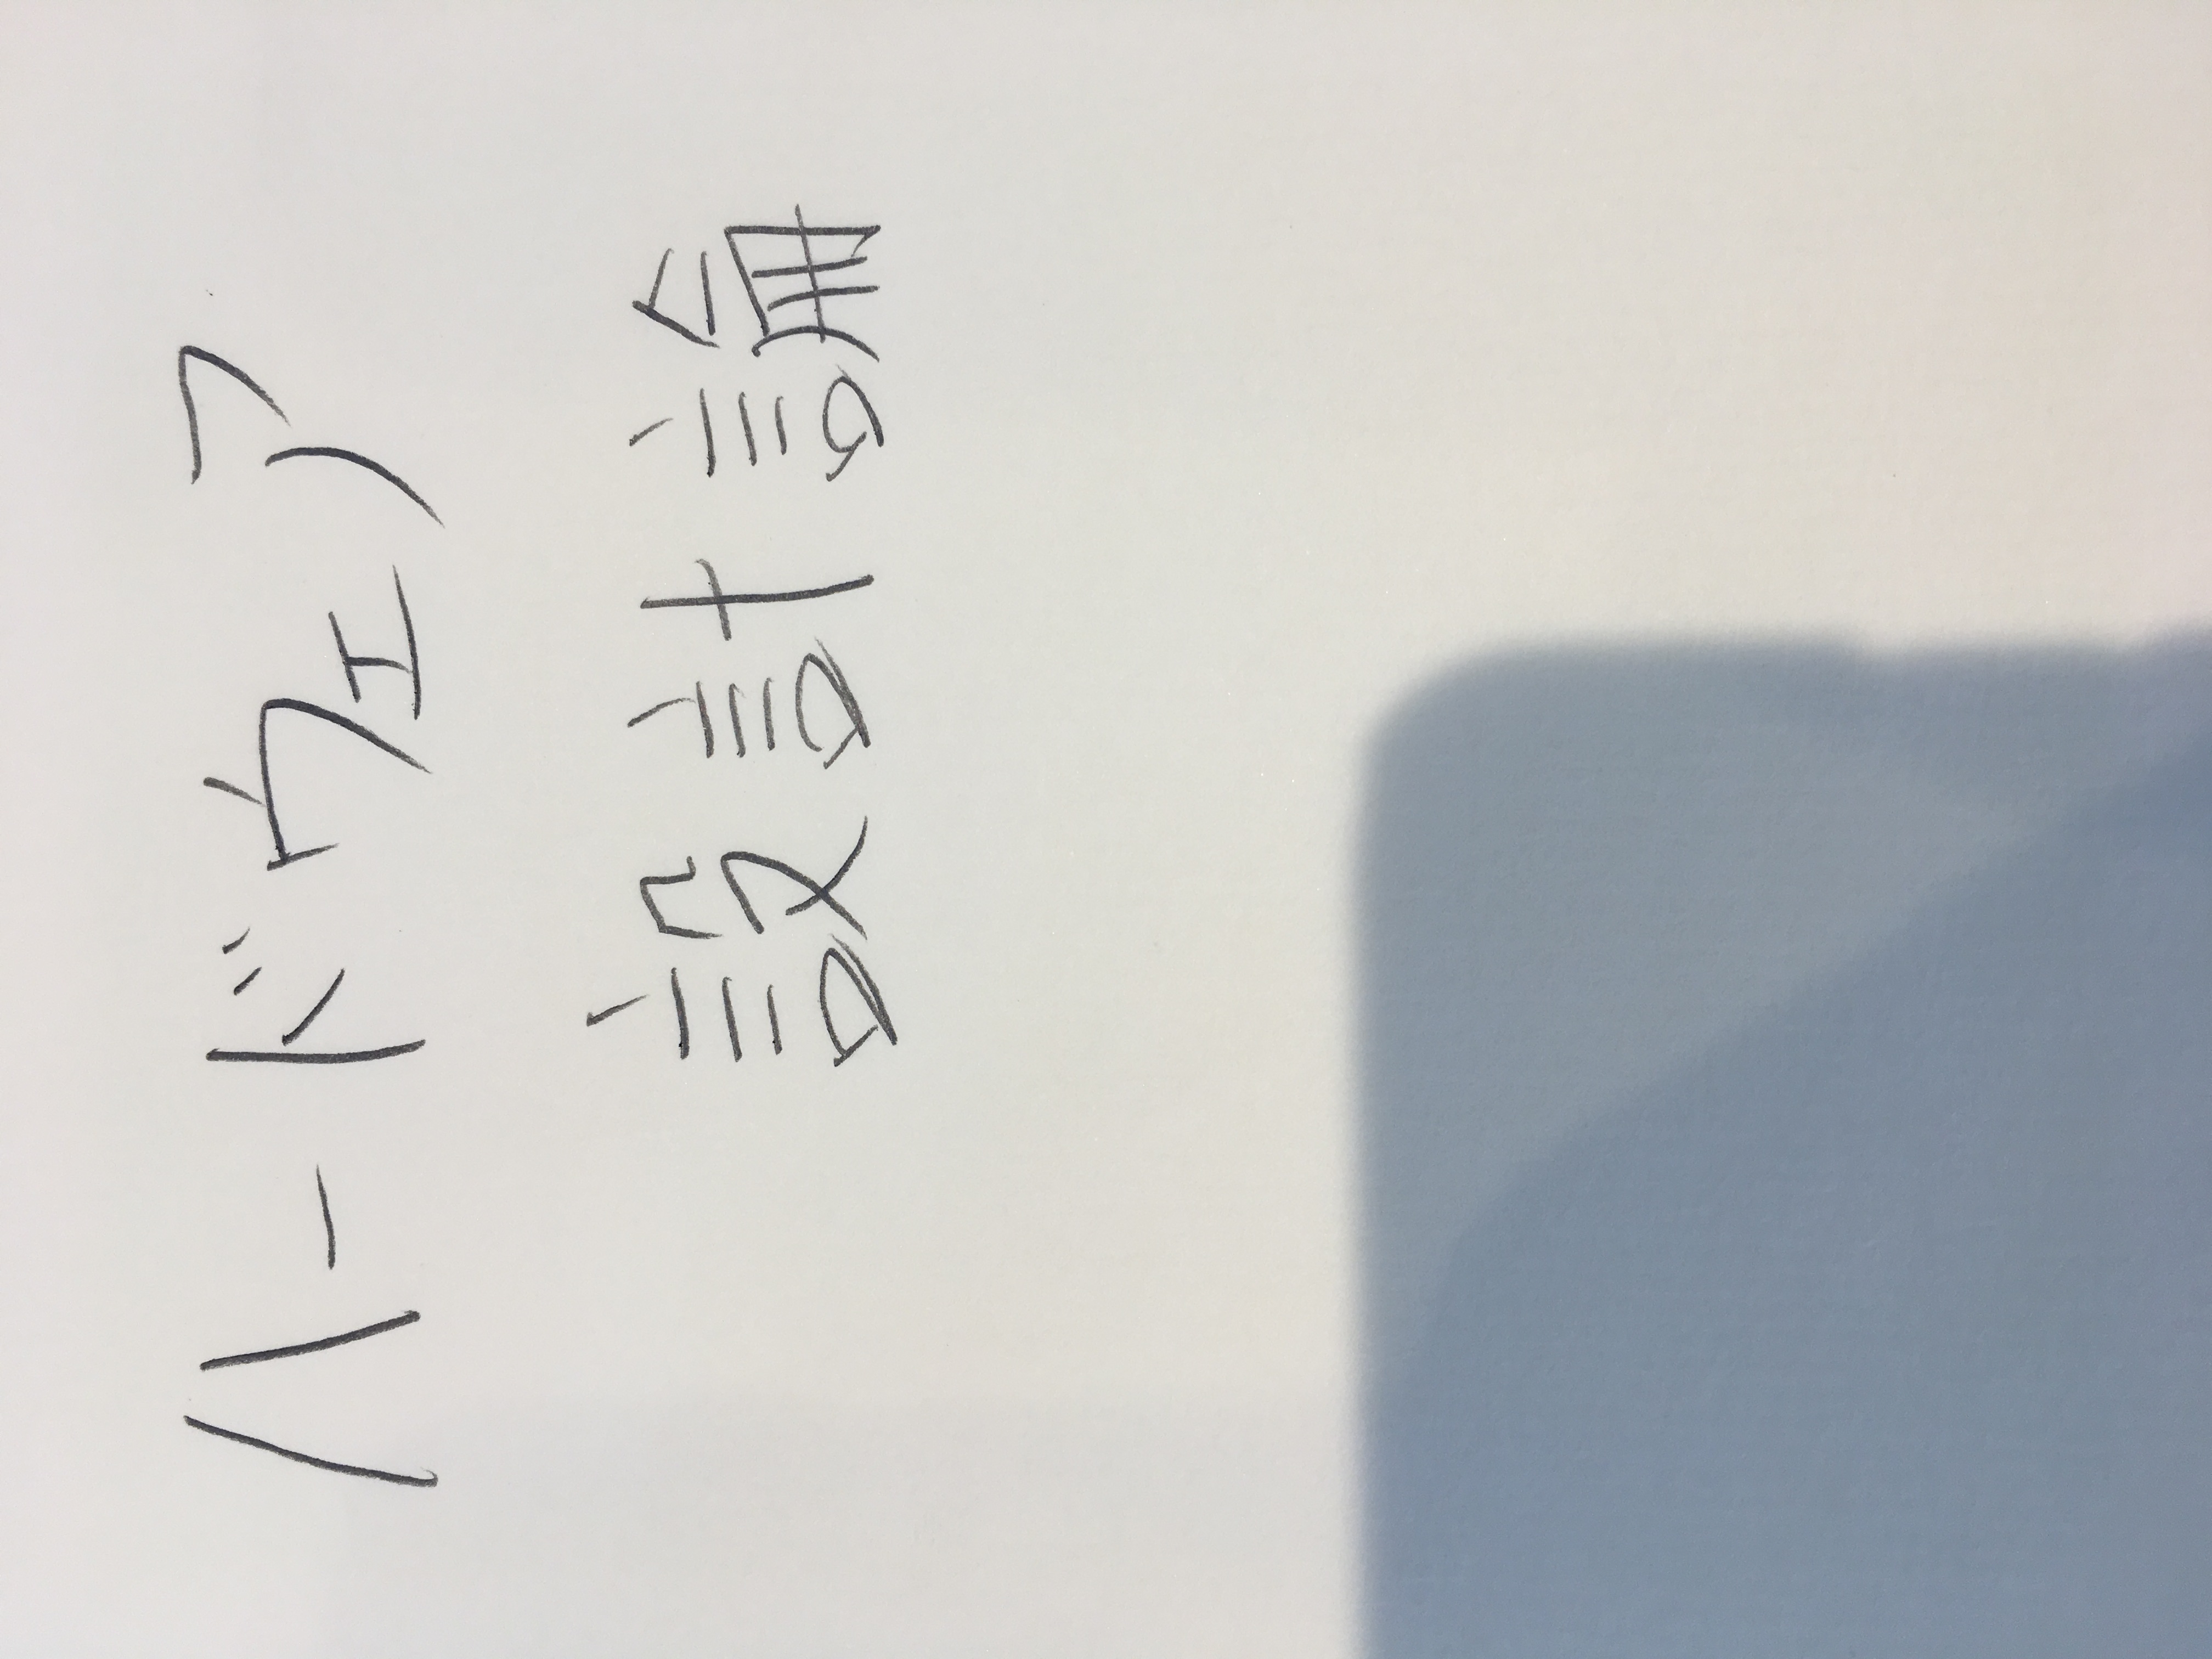 ハードウェア
設計論